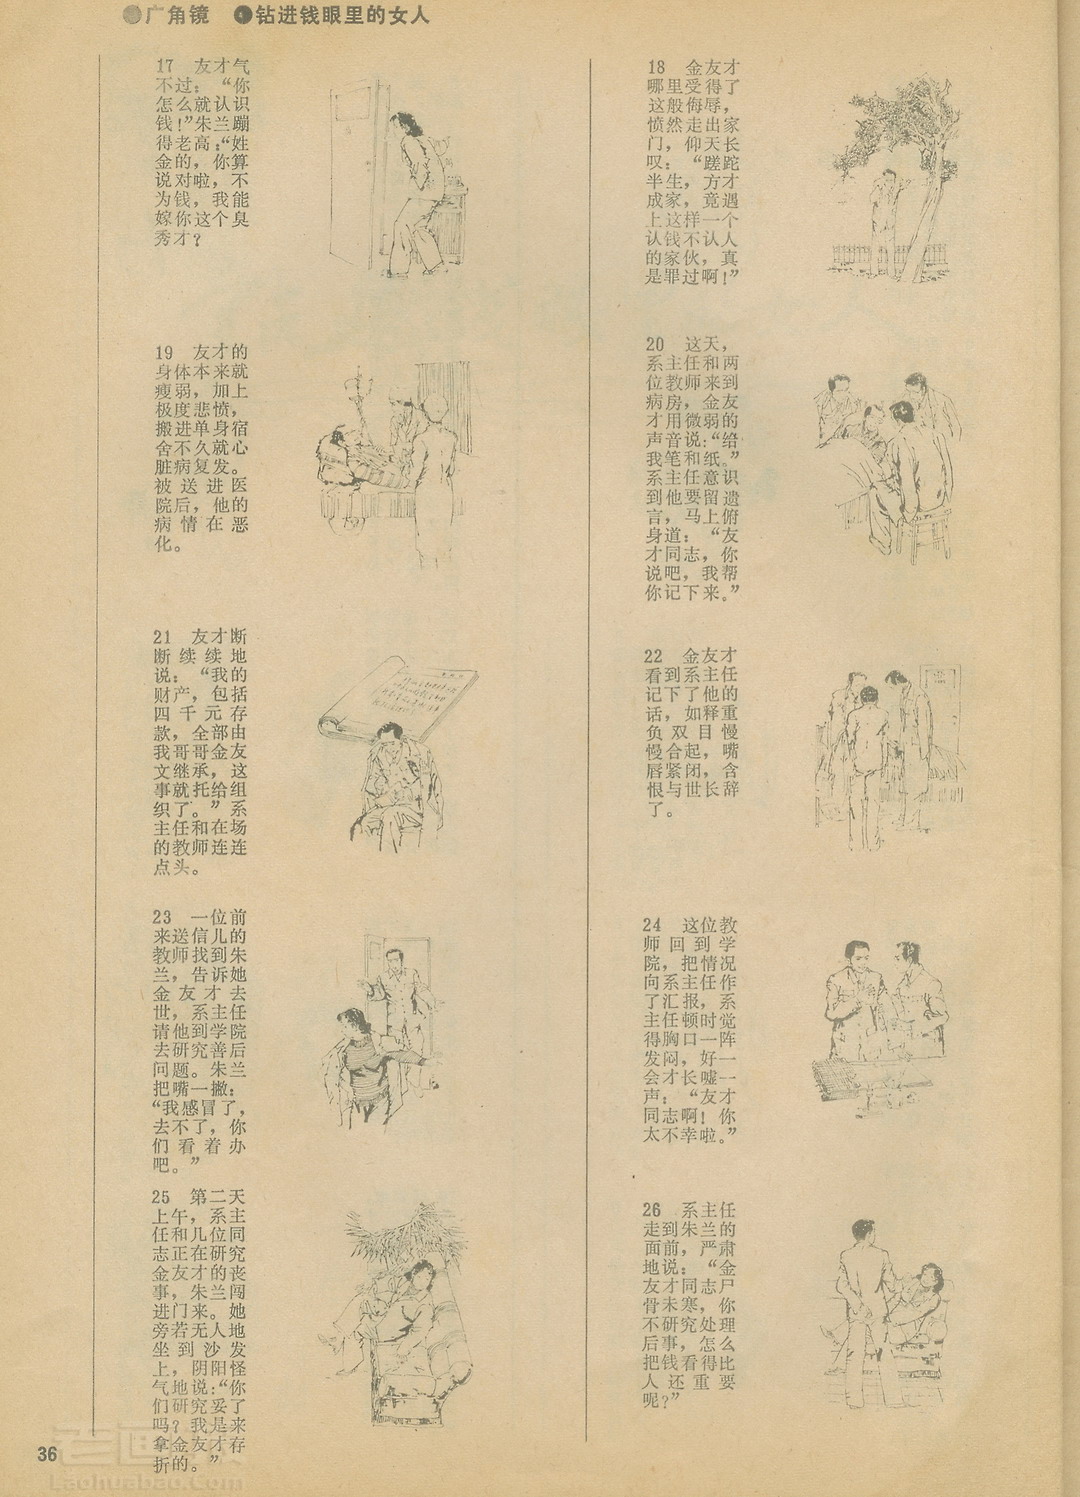 ●广角镜 ●钻进钱眼里的女人
17 友才气
不过：“你
怎么就认识
钱！”朱兰蹦
得老高：“姓
金的，你算
说对啦，不
为钱，我能
嫁你这个臭
秀才？
18 金友才
哪里受得了
这般侮辱，
愤然走出家
门，仰天长
叹：“蹉跎
半生，方才
成家，竟遇
上这样一个
认钱不认人
的家伙，真
是罪过啊！”
19 友才的
身体本来就
瘦弱，加上
极度悲愤，
搬进单身宿
舍不久就心
脏病复发。
被送进医
院后，他的
病情在恶
化。
20 这天，
系主任和两
位教师来到
病房，金友
才用微弱的
声音说：“给
我笔和纸。”
系主任意识
到他要留遗
言，马上俯
身道：“友
才同志，你
说吧，我帮
你记下来。”
21 友才断
断续续地
说：“我的
财产，包括
四千元存
款，全部由
我哥哥金友
文继承，这
事就托给组
织了。”系
主任和在场
的教师连连
点头。
22 金友才
看到系主任
记下了他的
话，如释重
负双目慢
慢合起，嘴
唇紧闭，含
恨与世长辞
了。
23 一位前
来送信儿的
教师找到朱
兰，告诉她
金友才去
世，系主任
请他到学院
去研究善后
问题。朱兰
把嘴一撇：
“我感冒了，
去不了，你
们看着办
吧。”
24 这位教
师回到学
院，把情况
向系主任作
了汇报，系
主任顿时觉
得胸口一阵
发闷，好一
会才长嘘一
声：“友才
同志啊！你
太不幸啦。”
25 第二天
上午，系主
任和几位同
志正在研究
金友才的丧
事，朱兰闯
进门来。她
旁若无人地
坐到沙发
上，阴阳怪
气地说：“你
们研究妥了
吗？我是来
拿金友才存
折的。”
26 系主任
走到朱兰的
面前，严肃
地说：“金
友才同志尸
骨未寒，你
不研究处理
后事，怎么
把钱看得比
人还重要
呢？”
36
老画报
Laohuabao.Com